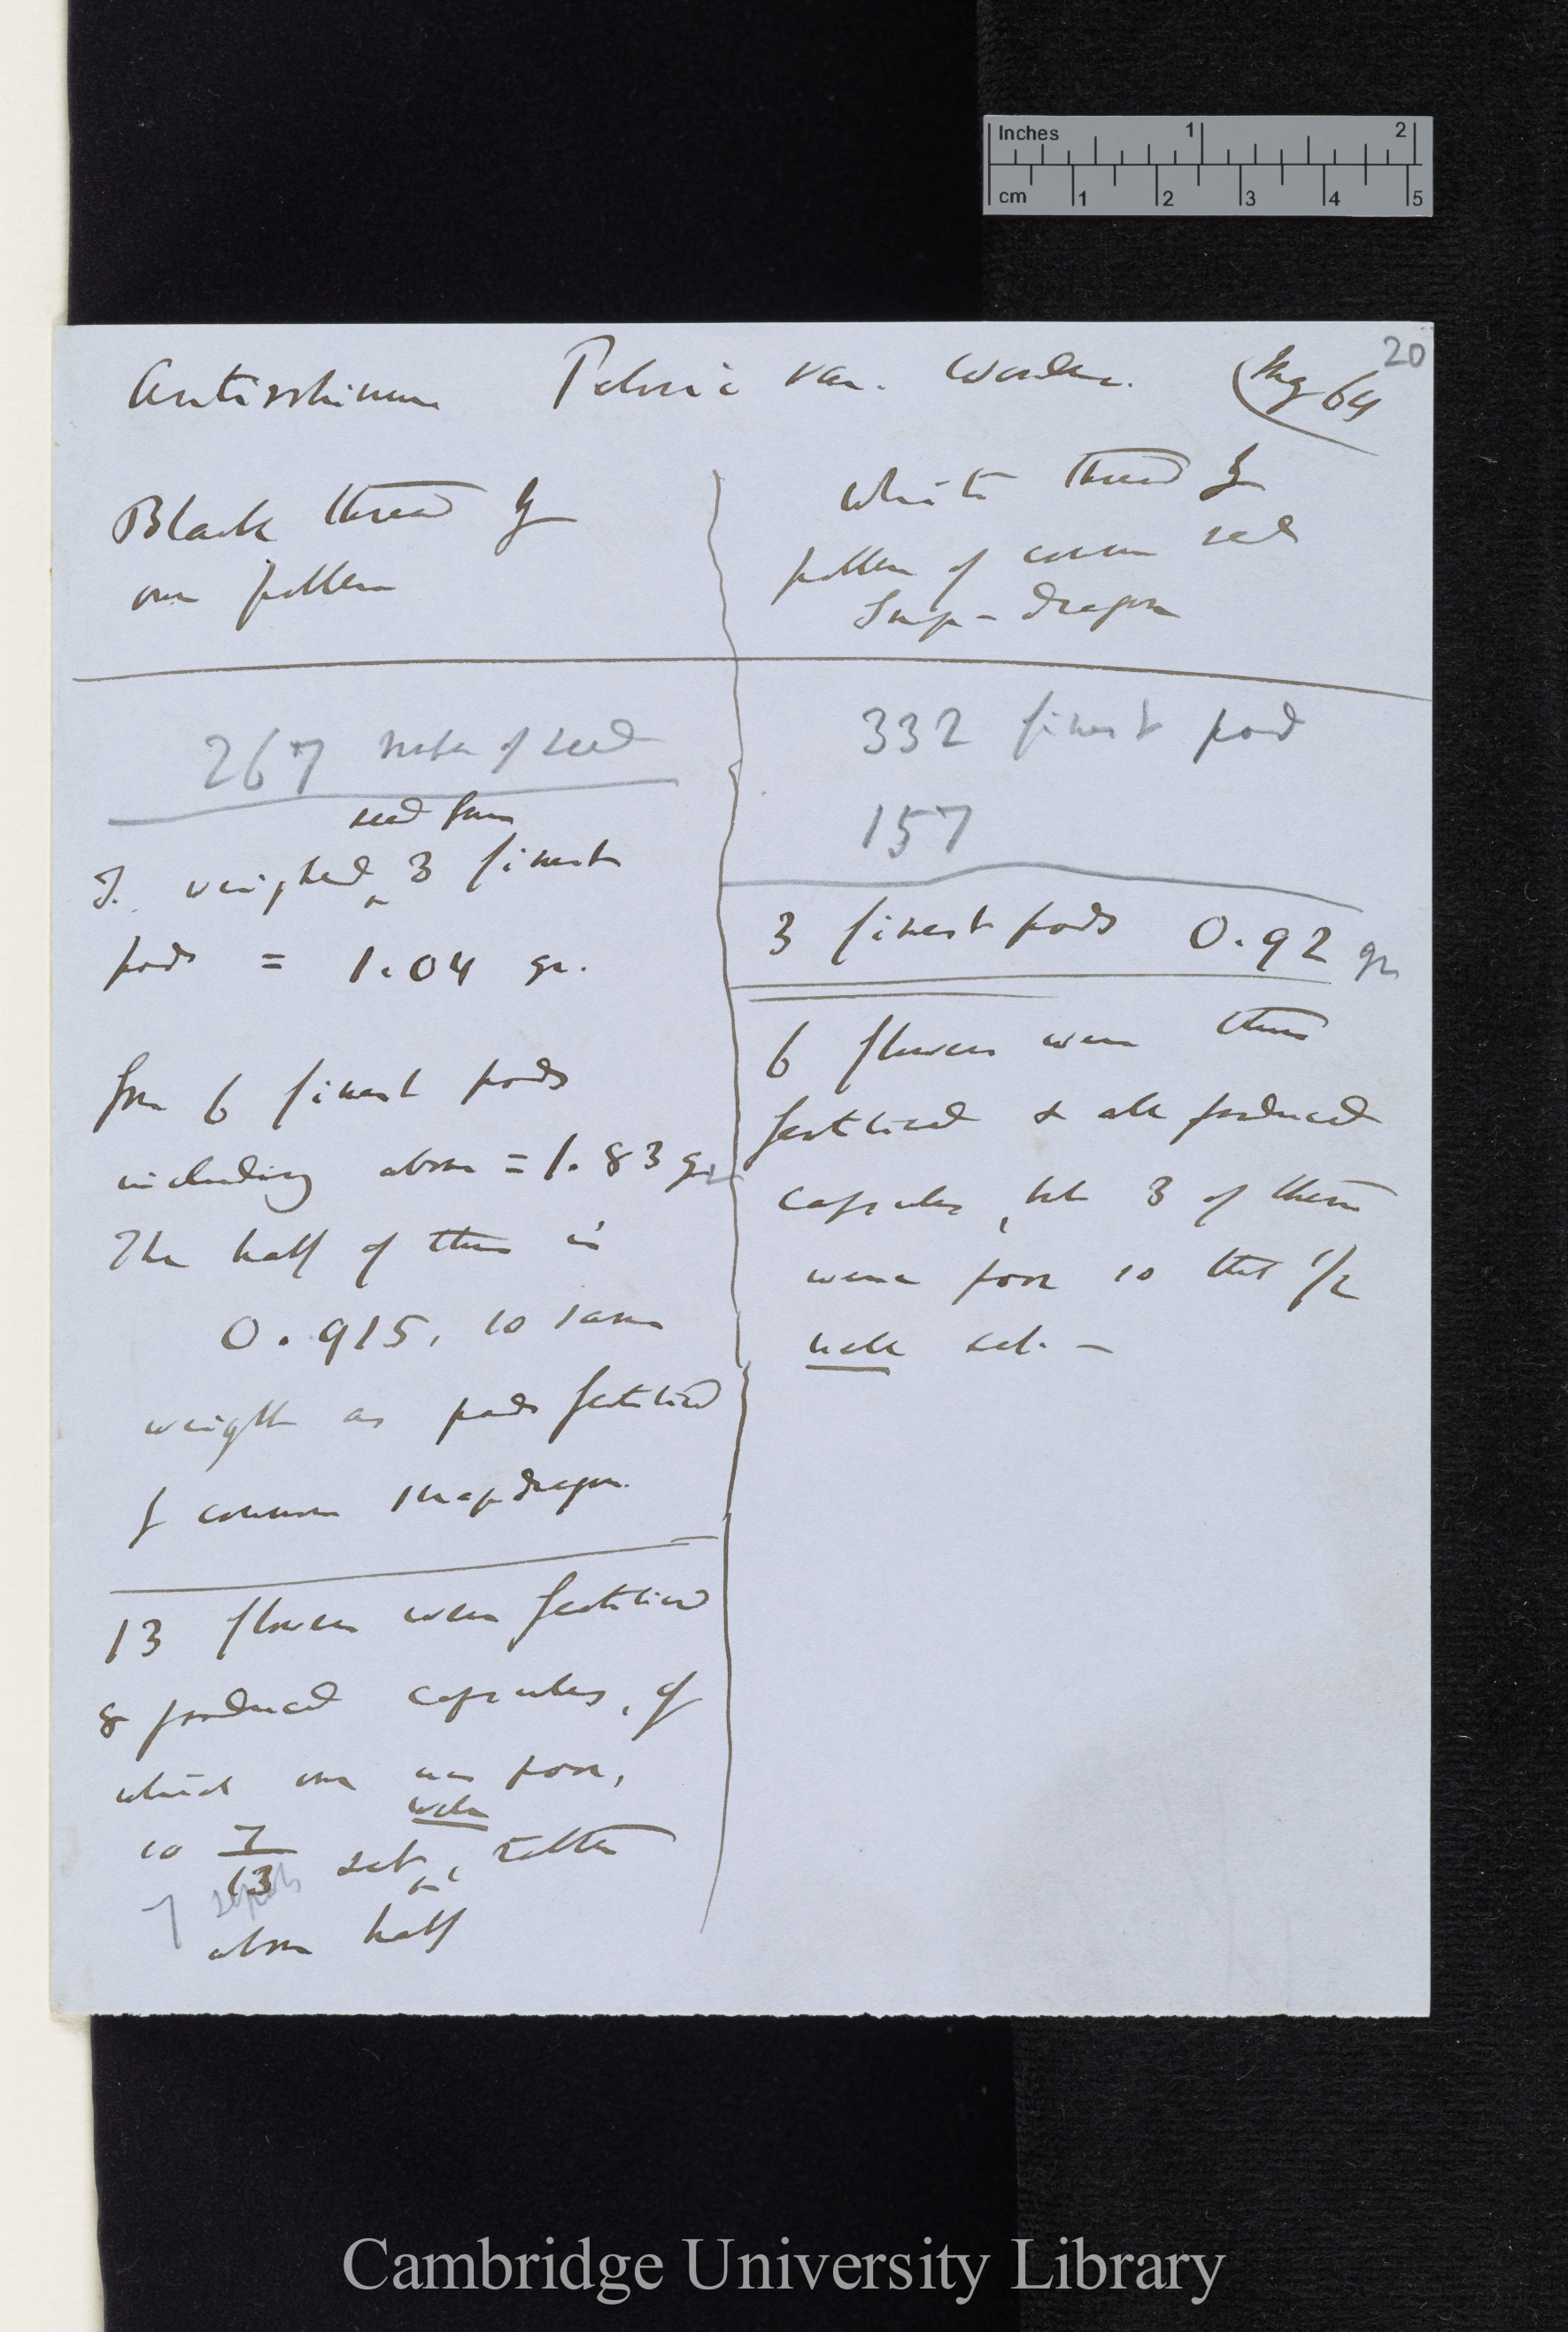 20
Antirrhinum Peloric var. Wonder.
64
Black thread by
own pollen
267 of seed
seed from
I weighed ^ 3 finest
pods = 1.04 gr.
from 6 finest pods
including above = 1.83 gr
The half of this is
0.915, so same
weight as pods fertilised
by common snap dragon.
13 flowers were fertilised
8 produced capsules, of
which one was poor,
well
so 7/13 set ^, rather
7
above half
White thread by
pollen of common red
Snap-dragon
332 finest pod
157
3 finest pods 0.92 gr
6 flowers were thus
fertilised & all produced
capsules, but 3 of them
were poor so that 1/2
well set. —
Inches 1 2
cm 1 2 3 4 5
Cambridge University Library